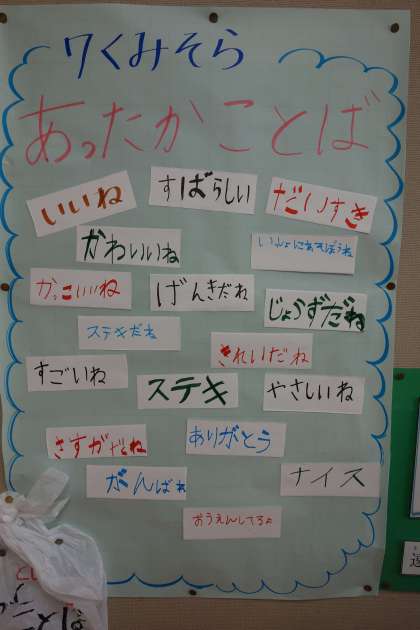 7くみそら
あったかことば
いいね
すばらしい
だいすき
かわいいね
いっしょにあそぼうね
かっこいいね
げんきだね
じょうずだね
ステキだね
きれいだね
すごいね
ステキ
やさしいね
さすがだね
ありがとう
がんばれ
ナイス
おうえんしてるよ